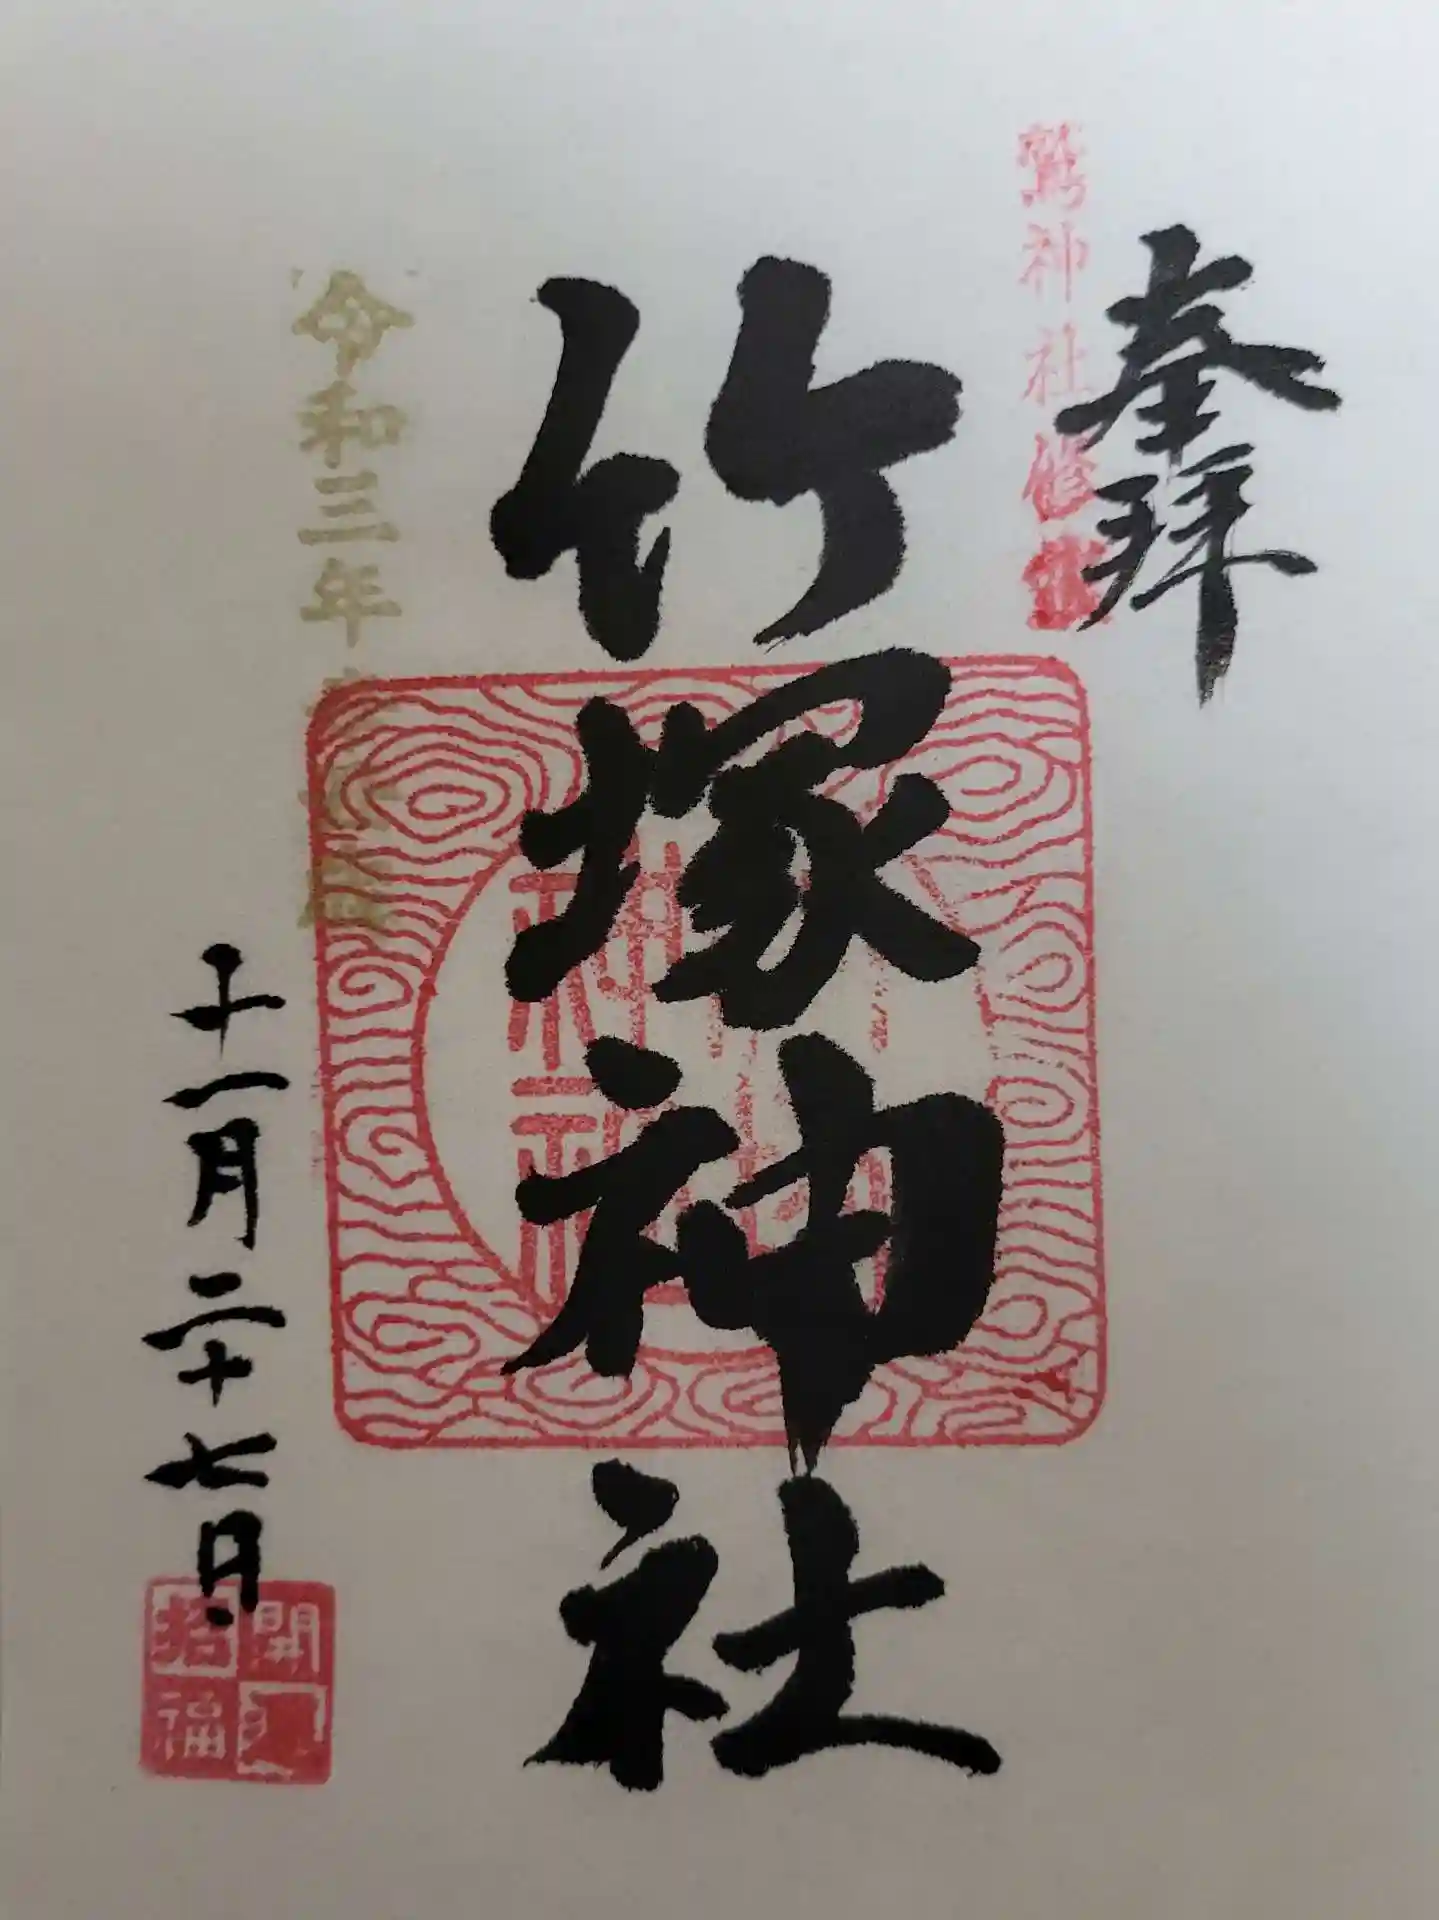 奉拝
鷲神社
竹塚神社
令和三年
十一月二十七日
開
招福